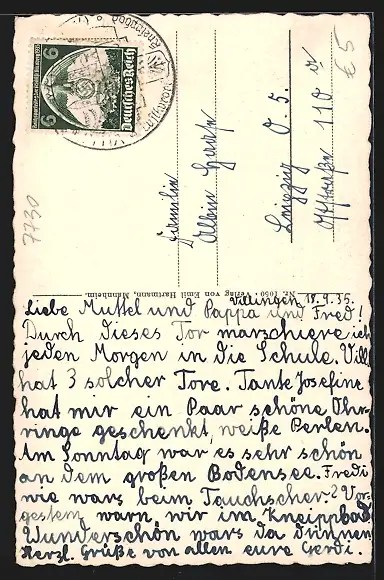 Familie
Albin
Leipzig O. 5.
110
€ 5
7730
6 Deutsches Reich 6
Kneippbad
Luftkurort
Nr. 1050 · Verlag von Emil Hartmann, Mannheim.
Villingen, 18.9.35.
Liebe Muttel und Pappa und Fred!
Durch dieses Tor marschiere ich
jeden Morgen in die Schule. Vill.
hat 3 solcher Tore. Tante Josefine
hat mir ein Paar schöne Ohr-
ringe geschenkt, weiße Perlen.
Am Sonntag war es sehr schön
an dem großen Bodensee. Fredi
wie wars beim Tauchscher? Vor-
gestern warn wir im Kneippbad
Wunderschön wars da drinnen
Herzl. Grüße von allen eure Gerdi.